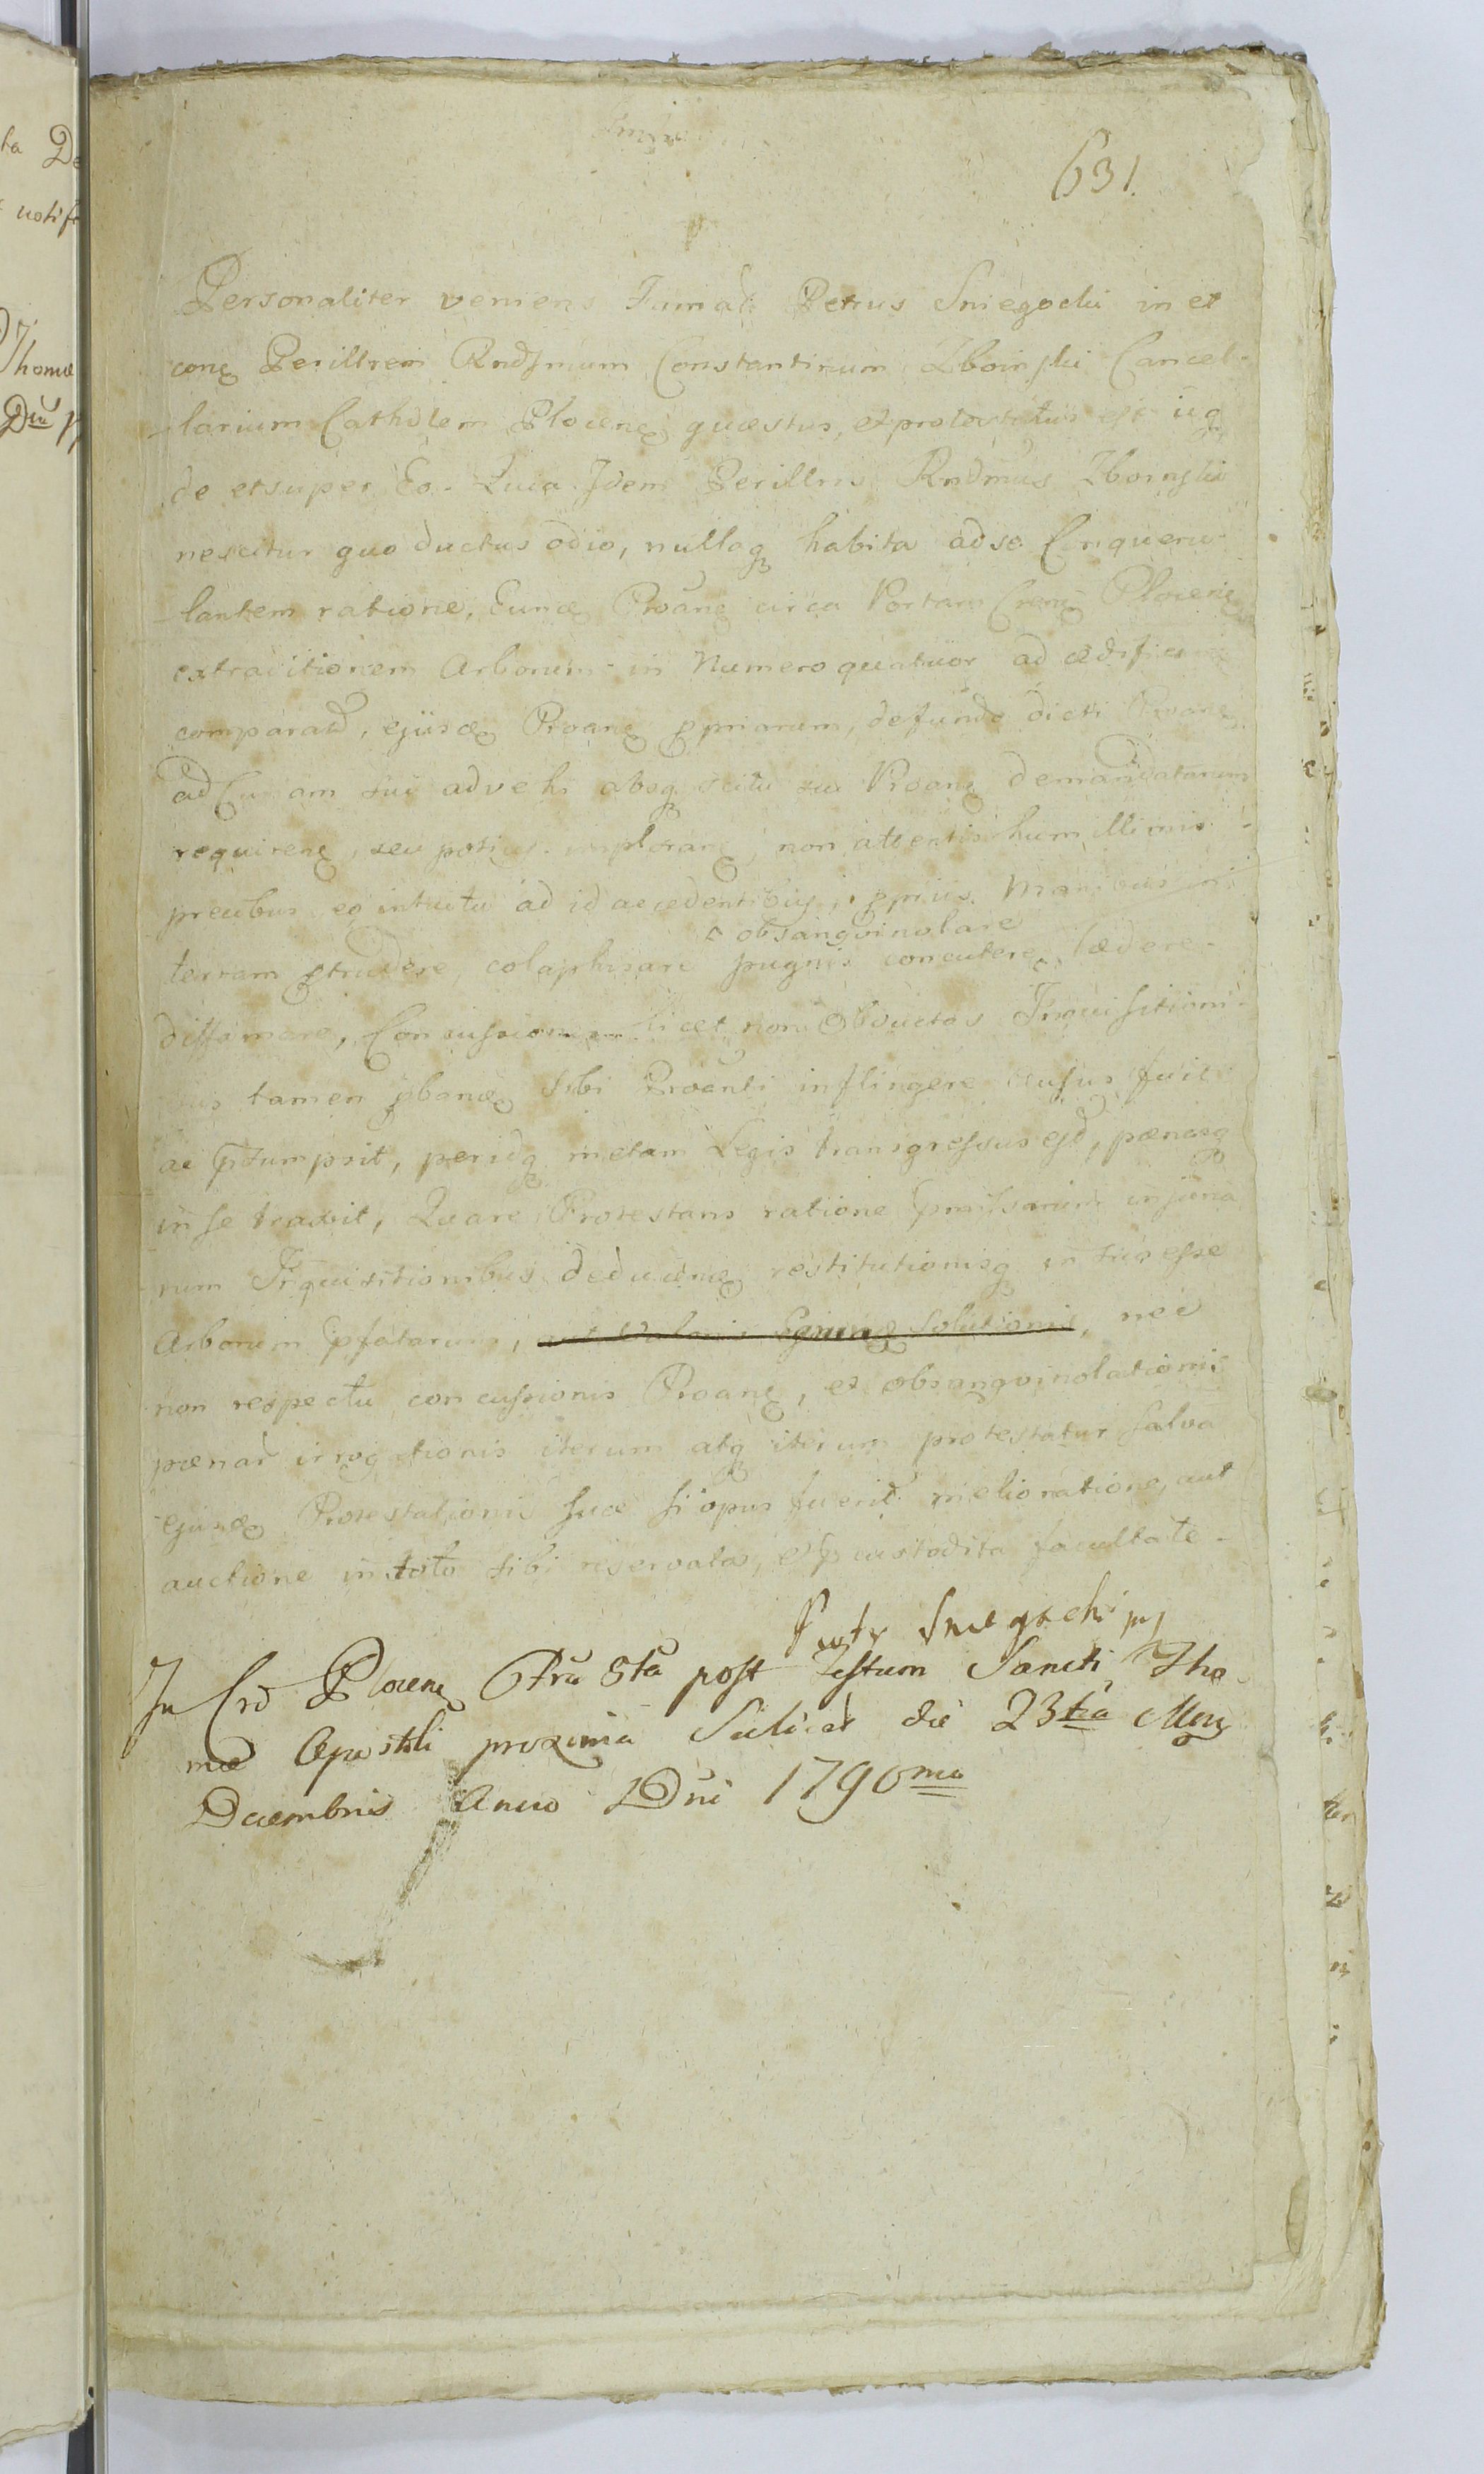 631.
Personaliter veniens Famat Petrus Sniegocki in et
cong Perillrem Rndsmum Constantinum Zboinski Cancel-
larium Cathdlem Plocens questus, et protestatus est iuq
de et super Eo. Quia Idem Perillris Rndmus Zboinski
nescitur quo ductus odio, nullaq habita ad se Conqueru-
lantem ratione, Eunde Proane circa Portam Crens Plocens
extraditionem Arborum in Numero quatuor ad ædificia
comparard, ejusde Proang ppriarum, de fundo dicti
ad Curiam sui advehi absq scitu sui Proang demandatarum
requirens, seu potius implorang, non attentis humillimis
precibus, eo intuitu ad id accedentibus, ppriis Manibus in
obsangvinolare
terram ptrudere, colaphisare pugnis concutere, lædere
diffamare, Concussiones licet non Obductas Inquisitioni-
bus tamen pbandas sibi Proanti inflingere ausus fuit
ac psumpsit, peridq metam Legis transgressus est, pænasq
in se traxit, Quare Protestans ratione pmissorum injuria
rum Inquisitionibus deducendæ restitutionisq in suo esse
Arborum pfatarum, solutionis, nec
non respectu concussionis Proang, et obsangvinolationis
pænar irrogationis iterum atq iterum protestatur salva
ejusde Protestationis suæ si opus fuerit melioratione, aut
auctione in toto sibi reservata, et pcustodita facultate.
Piotr Sniegocki mp
In Crd Plocens Fria 5ta post Festum Sancti Tho
mæ Apostoli proxima Scilicet die 23tia Mens
Decembris Anno Dni 1790mo